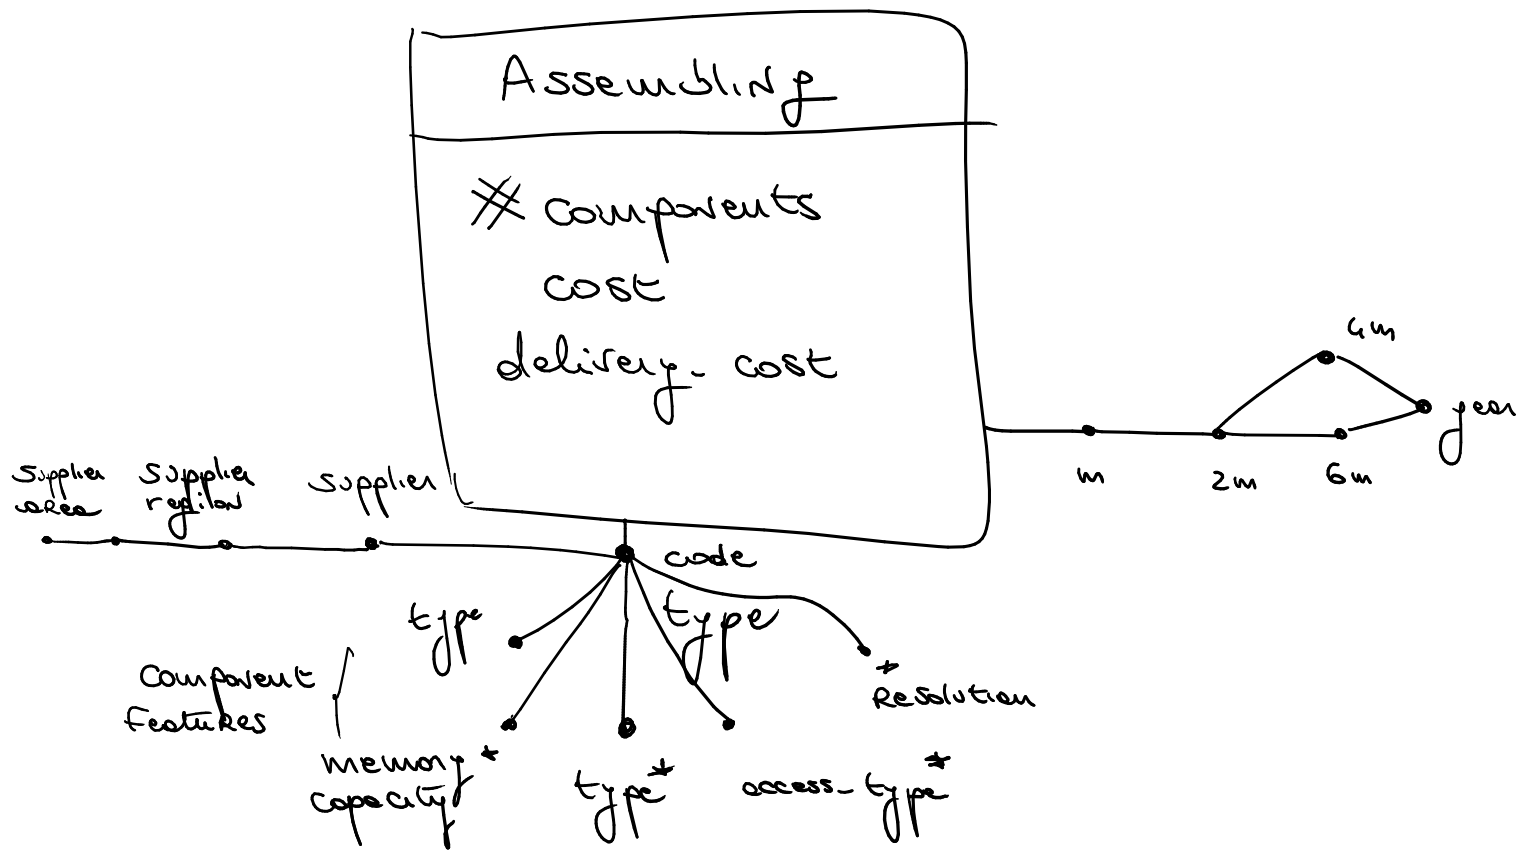 Assembling
# components
cost
delivery_cost
4m
year
m
2m
6m
supplier
area
supplier
region
supplier
code
type
type
component
features
memory *
capacity
type *
access_type *
* Resolution